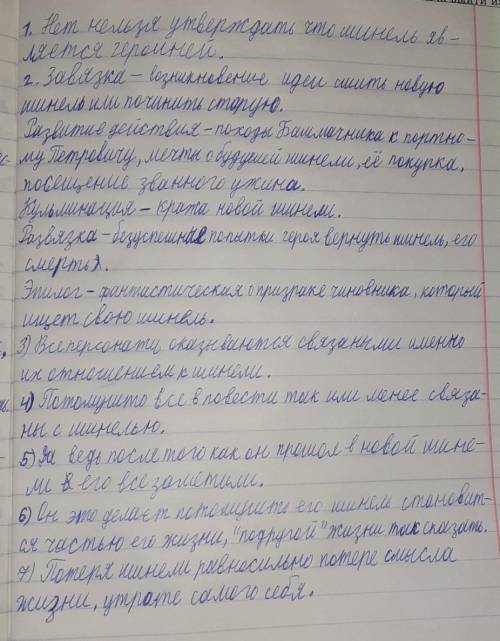 1. Нет нельзя утверждать что шинель яв-
ляется героиней.
2. Завязка – возникновение идеи сшить новую
шинель или починить старую.
Развитие действия – походы Башмачника к портно-
му Петровичу, мечты о будущей шинели, её покупка,
посещение званного ужина.
Кульминация – кража новой шинели.
Развязка – безуспешные попытки героя вернуть шинель, его
смерть.
Эпилог – фантастическая о призраке чиновника, который
ищет свою шинель.
3) Все персонажи оказываются связаными именно
их отношением к шинели.
4) Потомушто все в повести так или менее связа-
ны с шинелью.
5) Да ведь после того как он прошол в новой шине-
ли его все заметили.
6) Он это делает потомушто его шинель становит-
ся частью его жизни, "подругой" жизни так сказать.
7) Потеря шинели равносильно потере смысла
жизни, утрате самого себя.